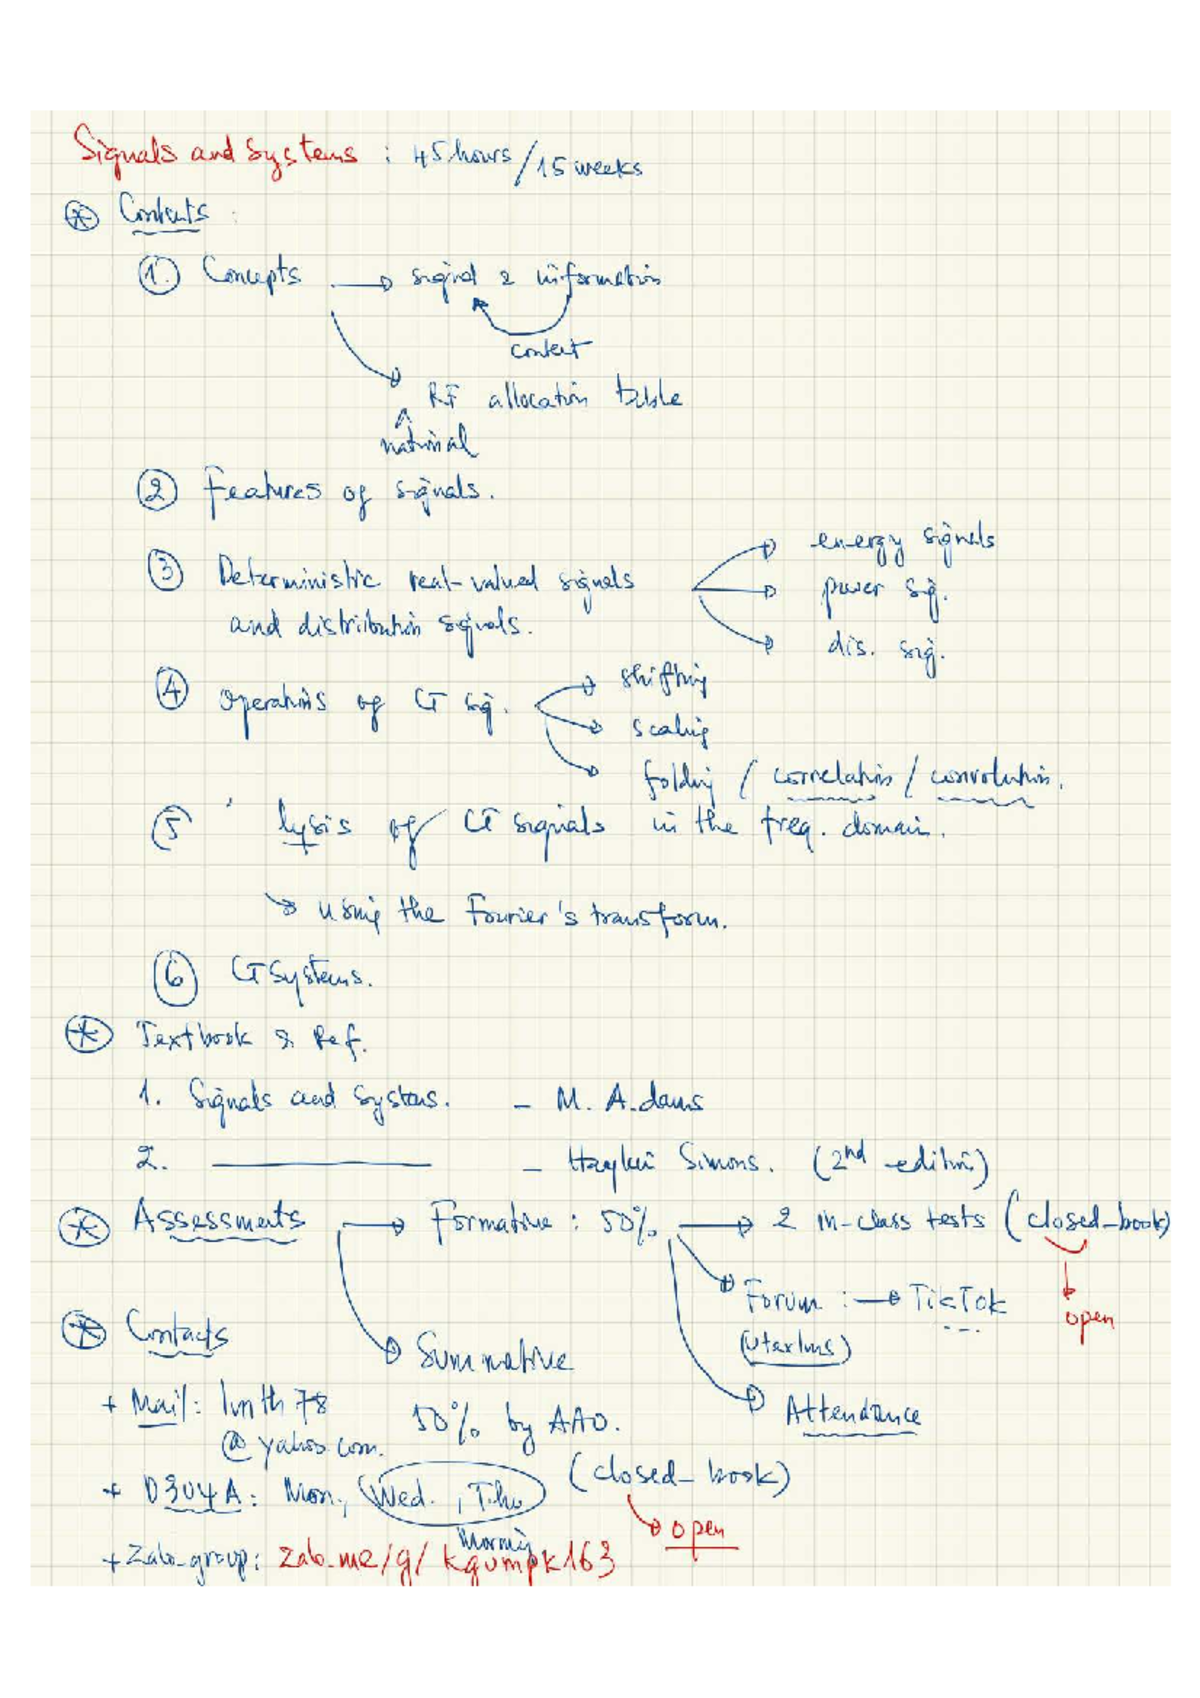 Signals and Systems : 45 hours / 15 weeks
* Contents :
1. Concepts → signal & information
content
RF allocation table
national
2 Features of signals.
3 Deterministic real-valued signals
and distribution signals.
energy signals
power sig.
dis. sig.
4 Operations of CT sig.
shifting
scaling
folding / correlation / convolution.
5 lysis of CT signals in the freq. domain.
↳ using the Fourier's transform.
6 CT Systems.
* Textbook & Ref.
1. Signals and Systems. - M. Adams
2. ———— - Simons. (2nd edition)
* Assessments → Formative : 50% → 2 in-class tests (closed-book)
→ open
Forum : → TikTok
(utexlms)
Attendance
Summative
50% by AAO.
(closed-book)
→ open
* Contacts
+ Mail : lvnth78
@ yahoo.com.
+ D304A : Mon., Wed., Thu
Morning
+ Zalo-group : zalo.me/g/kqumpk163